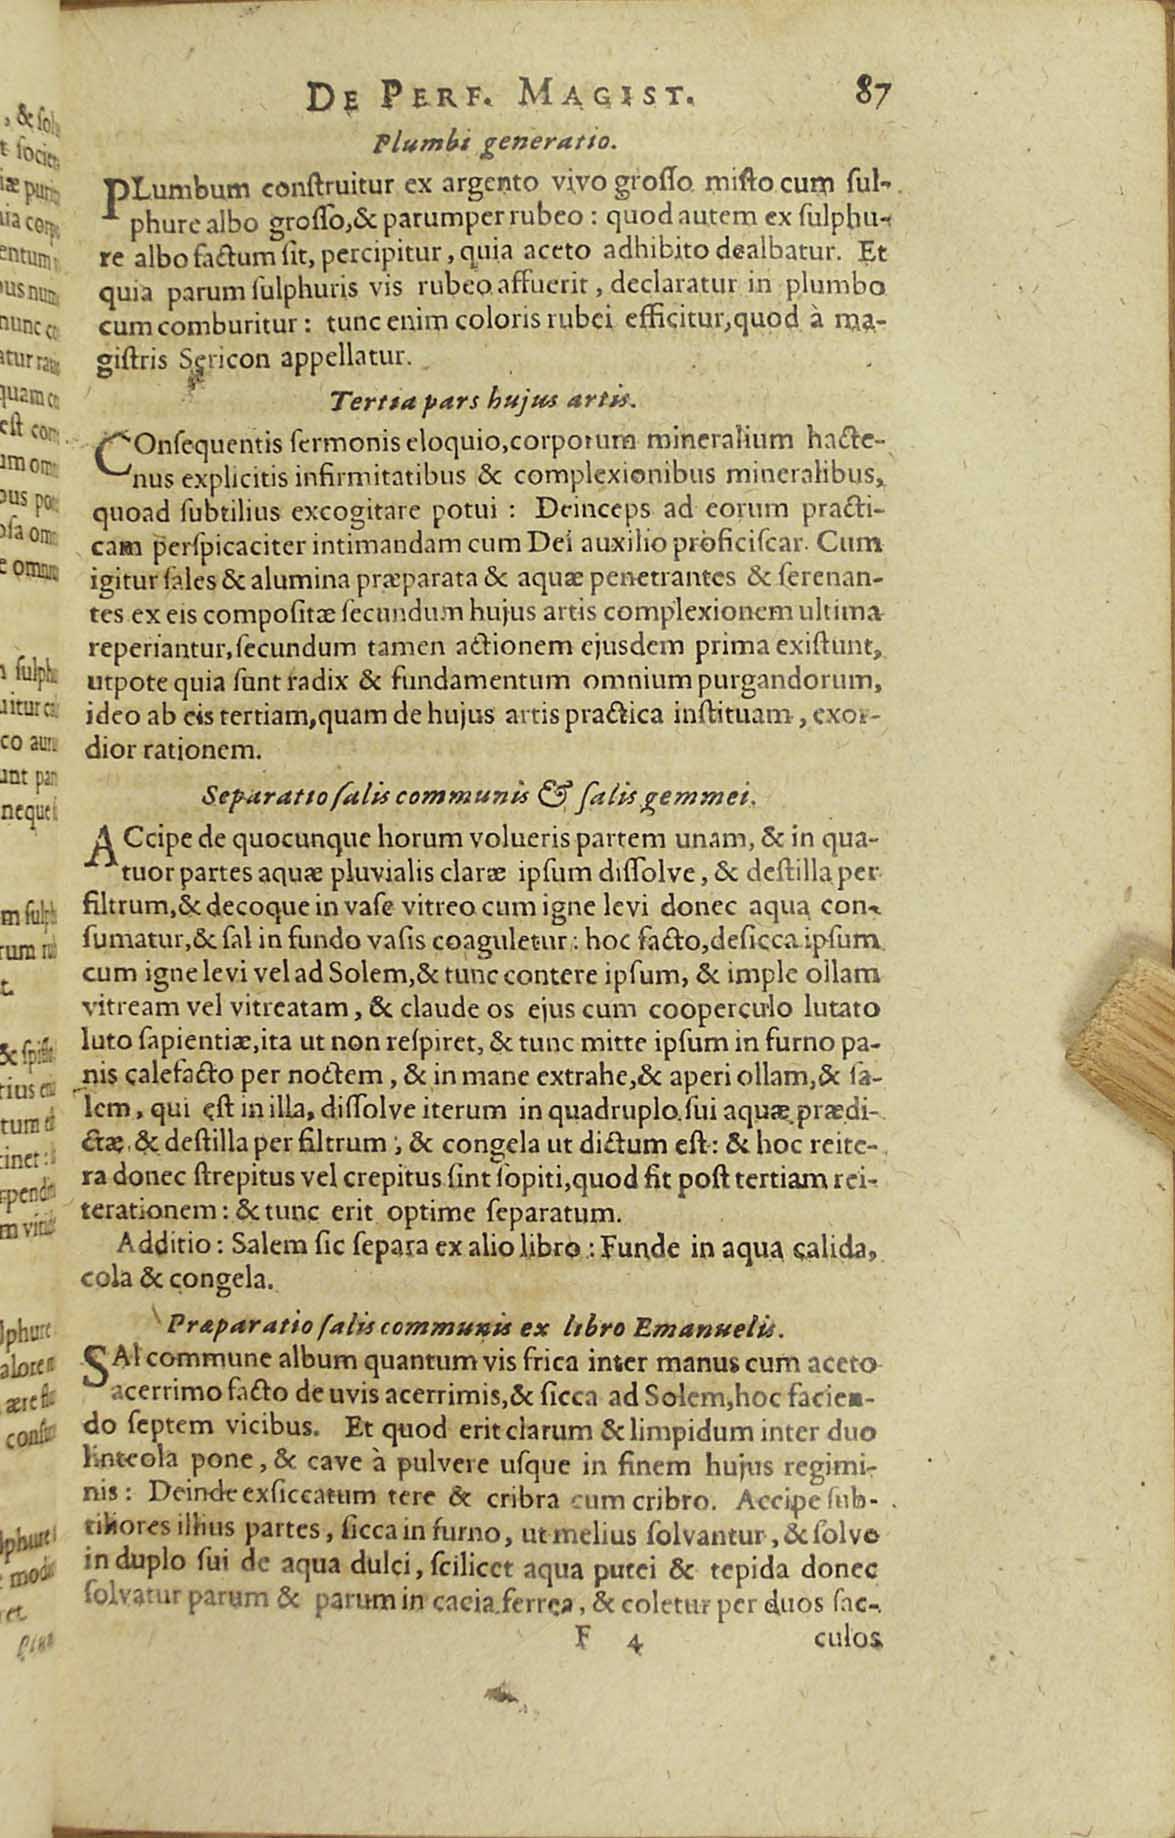 De Perf. Magist. 87
Plumbi generatio.
PLumbum construitur ex argento vivo grosso misto cum sul-
phure albo grosso, & parumper rubeo : quod autem ex sulphu-
re albo factum sit, percipitur, quia aceto adhibito dealbatur. Et
quia parum sulphuris vis rubeo affuerit, declaratur in plumbo
cum comburitur : tunc enim coloris rubei efficitur, quod à ma-
gistris Sericon appellatur.
Tertia pars hujus artis.
COnsequentis sermonis eloquio, corporum mineralium hacte-
nus explicitis infirmitatibus & complexionibus mineralibus,
quoad subtilius excogitare potui : Deinceps ad eorum practi-
cam perspicaciter intimandam cum Dei auxilio proficiscar. Cum
igitur sales & alumina præparata & aquæ penetrantes & serenan-
tes ex eis compositæ secundum hujus artis complexionem ultima
reperiantur, secundum tamen actionem ejusdem prima existunt,
utpote quia sunt radix & fundamentum omnium purgandorum,
ideo ab eis tertiam, quam de hujus artis practica instituam, exor-
dior rationem.
Separatio salis communis & salis gemmei.
ACcipe de quocunque horum volueris partem unam, & in qua-
tuor partes aquæ pluvialis claræ ipsum dissolve, & destilla per
filtrum, & decoque in vase vitreo cum igne levi donec aqua con-
sumatur, & sal in fundo vasis coaguletur : hoc facto, desicca ipsum
cum igne levi vel ad Solem, & tunc contere ipsum, & imple ollam
vitream vel vitreatam, & claude os ejus cum cooperculo lutato
luto sapientiæ, ita ut non respiret, & tunc mitte ipsum in furno pa-
nis calefacto per noctem, & in mane extrahe, & aperi ollam, & sa-
lem, qui est in illa, dissolve iterum in quadruplo sui aquæ prædi-
ctæ, & destilla per filtrum, & congela ut dictum est : & hoc reite-
ra donec strepitus vel crepitus sint sopiti, quod fit post tertiam rei-
terationem : & tunc erit optime separatum.
Additio : Salem sic separa ex alio libro : Funde in aqua calida,
cola & congela.
Præparatio salis communis ex libro Emanuelis.
SAl commune album quantum vis frica inter manus cum aceto
acerrimo facto de uvis acerrimis, & sicca ad Solem, hoc facien-
do septem vicibus. Et quod erit clarum & limpidum inter duo
linteola pone, & cave à pulvere usque in finem hujus regimi-
nis : Deinde exsiccatum tere & cribra cum cribro. Accipe sub-
tiliores illius partes, sicca in furno, ut melius solvantur, & solve
in duplo sui de aqua dulci, scilicet aqua putei & tepida donec
solvatur parum & parum in cacia ferrea, & coletur per duos sac-
F 4 culos